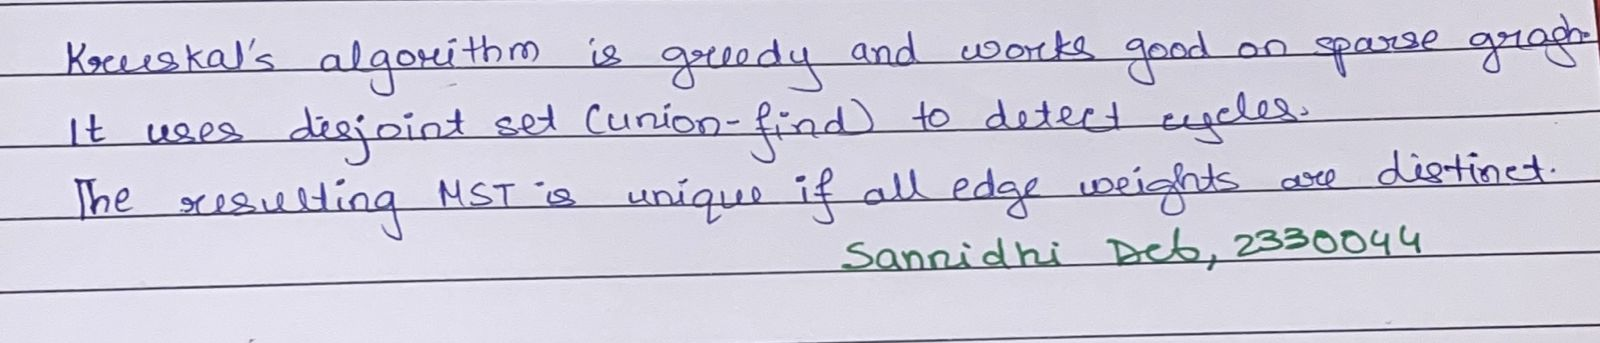 Kruskal's algorithm is greedy and works good on sparse graph.
It uses disjoint set (union-find) to detect cycles.
The resulting MST is unique if all edge weights are distinct.
Sannidhi Deb, 2330044